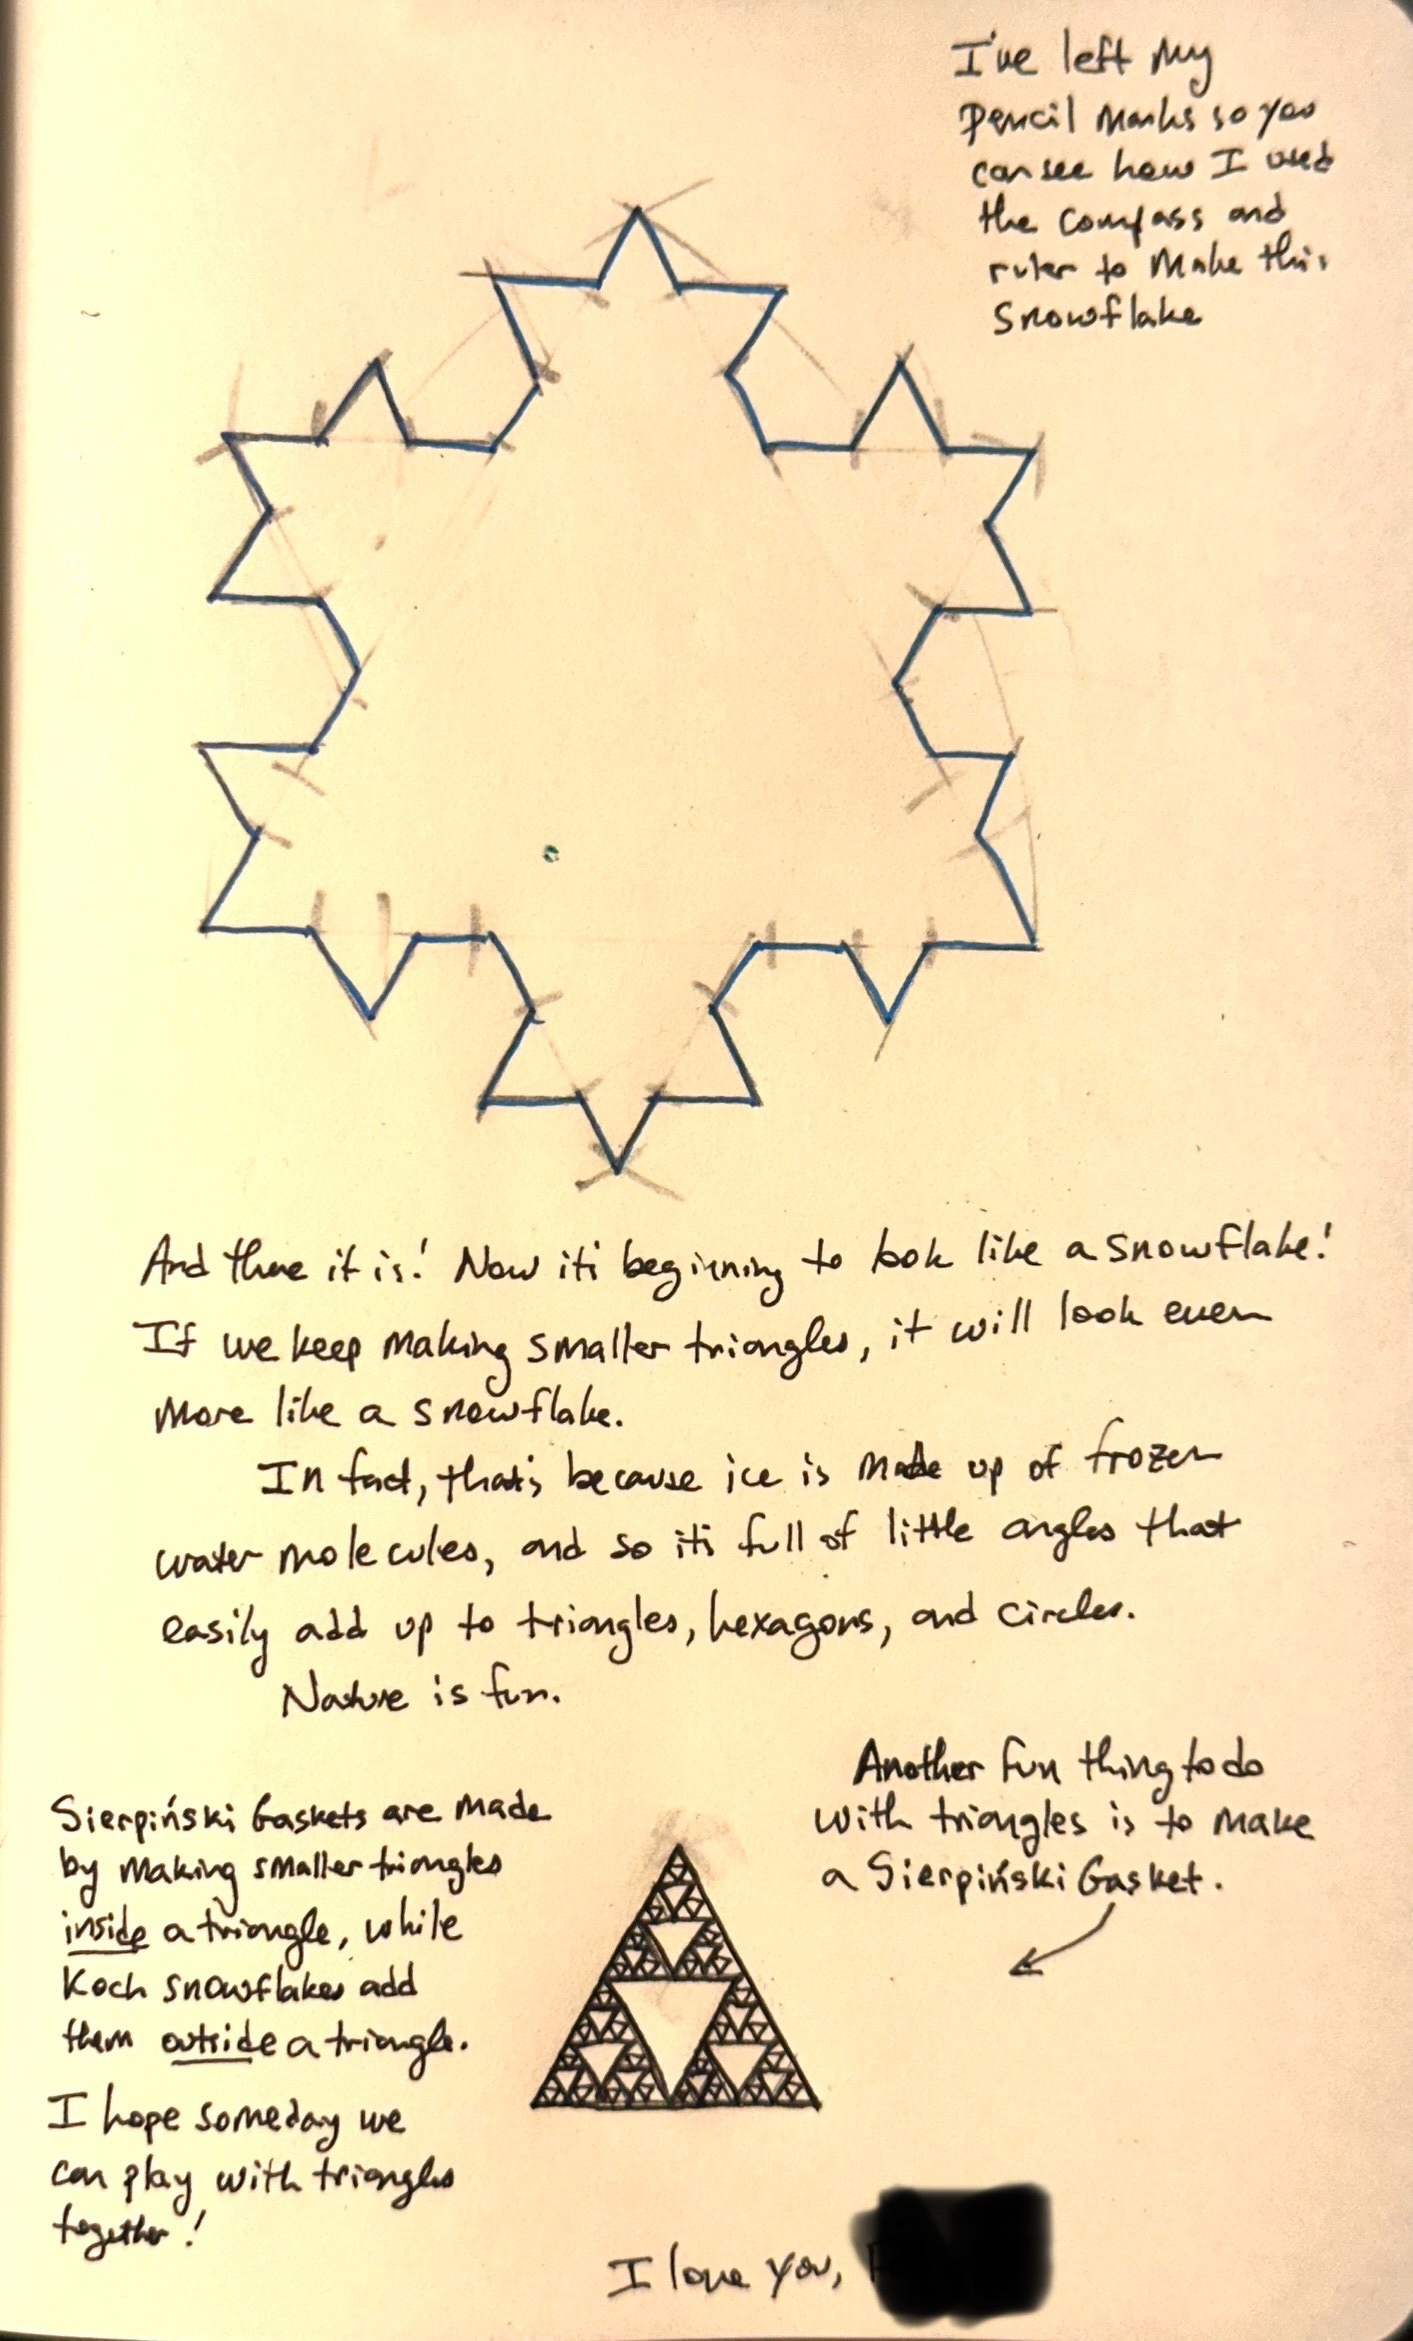 I've left my
Pencil marks so you
can see how I used
the compass and
ruler to make this
Snowflake
And there it is! Now it's beginning to look like a snowflake!
If we keep making smaller triangles, it will look even
more like a snowflake.
In fact, that's because ice is made up of frozen
water molecules, and so it's full of little angles that
easily add up to triangles, hexagons, and circles.
Nature is fun.
Another fun thing to do
with triangles is to make
a Sierpiński Gasket.
Sierpiński Gaskets are made
by making smaller triangles
inside a triangle, while
Koch snowflakes add
them outside a triangle.
I hope someday we
can play with triangles
together!
I love you,